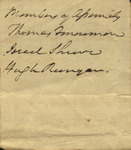 Members of Assembly
Thomas Sinnickson
Israel Shreve
Hugh Runyan.